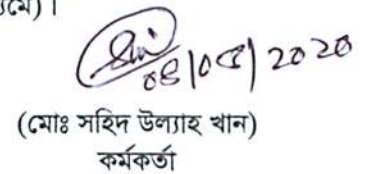 ০৪/০৫/2020
(মোঃ সহিদ উল্যাহ খান)
কর্মকর্তা